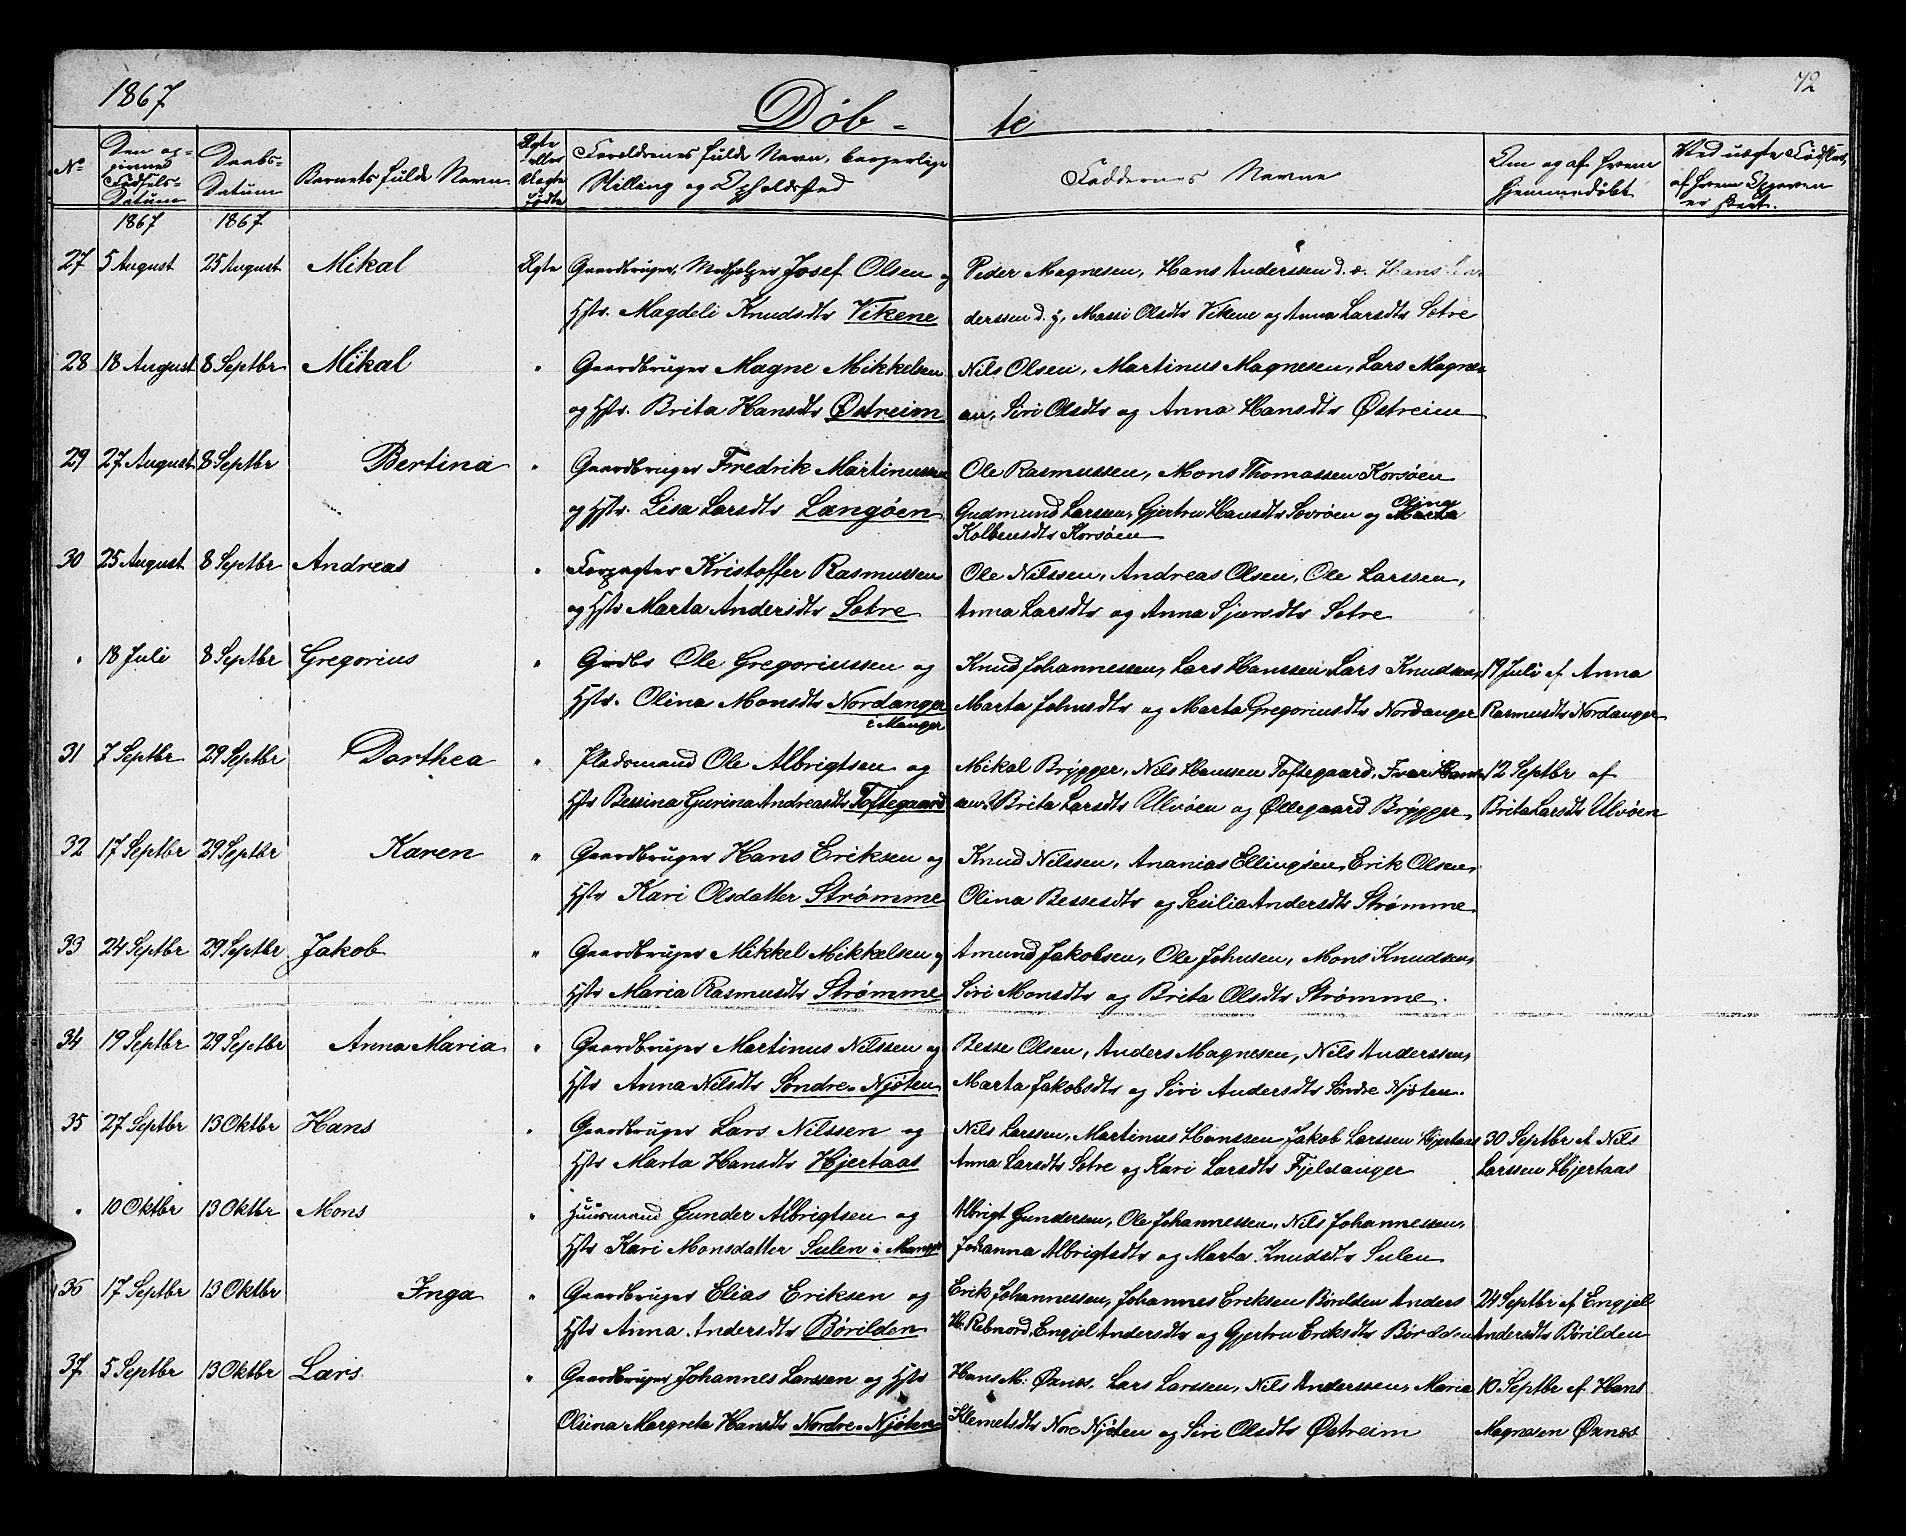 1867
Døb-
te
72
No
Den op-
givne
Fødsels-
Datum
Daabs-
Datum
Barnets fulde Navn.
Ægte
eller
Uægte
Fødte
Foreldrenes fulde Navn, borgerlige
Stilling og Opholdssted
Faddernes Navne
Om og af hvem
hjemmedøbt
Ved uægte Fødsler,
af hvem Opgaven
er skeet.
1867 1867
27 5 August 25 August Mikal Ægte Gaardbruger, Medhjelper Josef Olsen og Peder Magnesen, Hans Anderssen d. æ. Hans An-
Hstr. Magdeli Knudsdtr Vikene derssen d. y, Massi Olsdtr Vikene og Anna Larsdtr Sætre
28 18 August 8 Septbr Mikal " Gaardbruger Magne Mikkelsen Nils Olsen, Martinus Magnesen, Lars Magne-
og Hstr. Brita Hansdtr Østreim en, Siri Olsdtr og Anna Hansdtr Østreim
29 27 August 8 Septbr Bertina " Gaardbruger Fredrik Martinussen Ole Rasmussen, Mons Thomassen Korsøen
og Hstr. Lisa Larsdtr Langøen Gudmund Larsen, Gjertru Hansdtr Sovrøen og Marta Olina
Kolbensdtr Korsøen
30 25 August 8 Septbr Andreas " Forpagter Kristoffer Rasmussen Ole Nilssen, Andreas Olsen, Ole Larssen,
og Hstr Marta Andersdtr Sætre Anna Larsdtr og Anna Sjursdtr Sætre
" 18 Juli 8 Septbr Gregorius " Grdbr Ole Gregoriussen og Knud Johannessen, Lars Hanssen Lars Knudsen, 19 Juli af Anna
Hstr. Olina Monsdtr Nordanger Marta Johnsdtr og Marta Gregoriusdtr Nordanger Rasmusdtr Nordanger
i Manger
31 7 Septbr 29 Septbr Dorthea " Pladsmand Ole Albrigtsen og Mikal Brygger, Nils Hanssen Toftegaard, Ivar Hans- 12 Septbr af
Hstr Bessina Gurina Andreasdtr Toftegaard en, Brita Larsdtr Ulvøen og Øllegaard Brygger, Brita Larsdtr Ulvøen
32 17 Septbr 29 Septbr Karen " Gaardbruger Hans Eriksen og Knud Nilssen, Ananias Ellingsen, Erik Olsen,
Hstr Kari Olsdatter Strømme Olina Bessesdtr og Sesilia Andersdtr Strømme
33 24 Septbr 29 Septbr Jakob " Gaardbruger Mikkel Mikkelsen og Amund Jakobsen, Ole Johnsen, Mons Knudsen,
Hstr Maria Rasmusdtr Strømme Siri Monsdtr og Brita Olsdtr Strømme.
34 19 Septbr 29 Septbr Anna Maria " Gaardbruger Martinus Nilssen og Besse Olsen, Anders Magnesen, Nils Anderssen,
Hstr Anna Nilsdtr Søndre-Njøten Marta Jakobsdtr og Siri Andersdtr Søndre Njøten.
35 27 Septbr 13 Oktbr Hans " Gaardbruger Lars Nilssen og Nils Larssen, Martinus Hanssen, Jakob Larssen Hjertaas 30 Septbr af Nils
Hstr Marta Hansdtr Hjertaas Anna Larsdtr Sætre og Kari Larsdtr Fjeldanger Larssen Hjertaas
" 10 Oktbr 13 Oktbr Mons " Huusmand Gunder Albrigtsen og Albrigt Gundersen, Ole Johannessen, Nils Johannessen,
Hstr Kari Monsdatter Sulen i Manger Johanna Albrigtsdtr og Marta Knudsdtr Sulen
36 17 Septbr 13 Oktbr Inga " Gaardbruger Elias Eriksen og Erik Johannessen, Johannes Eriksen Børilden Anders 24 Septbr af Engjel
Hstr Anna Andersdtr Børilden H. Rebnord, Engjel Andersdtr og Gjertru Eriksdtr Børilden Andersdtr Børilden
37 5 Septbr 13 Oktbr Lars " Gaardbruger Johannes Larssen og Hstr Hans M. Ørnes, Lars Larssen, Nils Anderssen, Maria 10 Septbr af Hans
Olsina Margreta Hansdtr Nordre-Njøten Klemetsdtr Nore Njøten og Siri Olsdtr Østreim Magnesen Ørnes